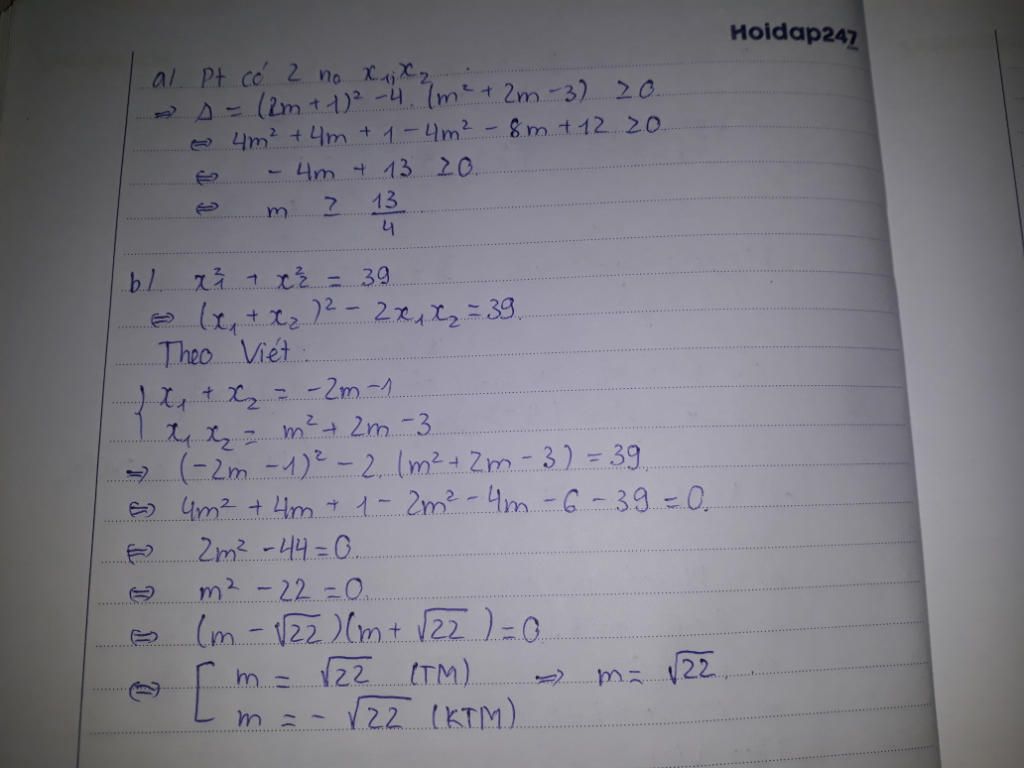 Hoidap247
a/ Pt có 2 no x₁; x₂
⇒ Δ = (2m + 1)² - 4. (m² + 2m - 3) ≥ 0
⇔ 4m² + 4m + 1 - 4m² - 8m + 12 ≥ 0
⇔ - 4m + 13 ≥ 0.
⇔ m ≥ 13/4
b/. x₁² + x₂² = 39
⇔ (x₁ + x₂)² - 2x₁x₂ = 39.
Theo Viét:
{ x₁ + x₂ = -2m - 1
x₁ x₂ = m² + 2m - 3
⇒ (-2m - 1)² - 2. (m² + 2m - 3) = 39.
⇔ 4m² + 4m + 1 - 2m² - 4m - 6 - 39 = 0.
⇔ 2m² - 44 = 0.
⇔ m² - 22 = 0.
⇔ (m - √22)(m + √22) = 0
⇔ [ m = √22 (TM) ⇒ m = √22.
m = - √22 (KTM)